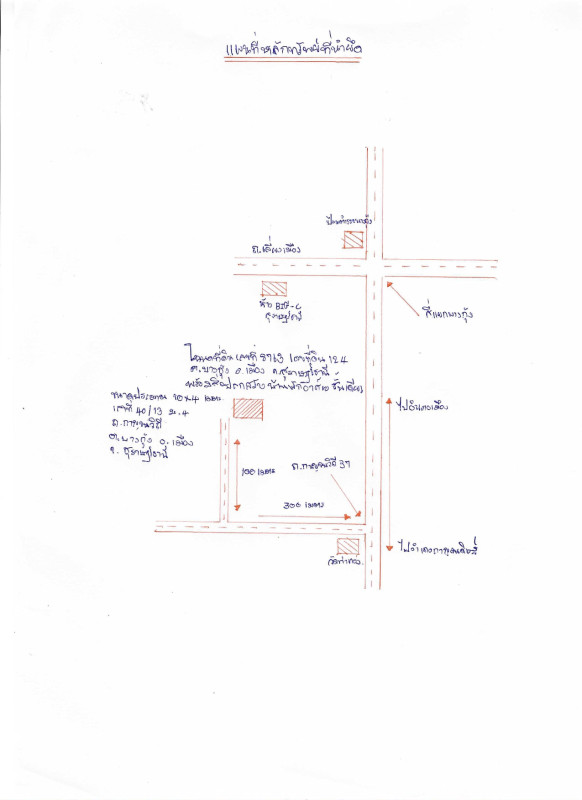 แผนที่หลักทรัพย์ที่นำยึด
ถ.เลี่ยงเมือง
ห้าง BIG-C
สุราษฎร์ธานี
สี่แยกบางกุ้ง
โฉนดที่ดิน เลขที่ 8763 เลขที่ดิน 124
ต.บางกุ้ง อ.เมือง จ.สุราษฎร์ธานี
พร้อมสิ่งปลูกสร้าง บ้านพักอาศัย ชั้นเดียว
ขนาดประมาณ 10x4 เมตร
เลขที่ 40/13 ม.4
ถ.กาญจนวิถี
ต.บางกุ้ง อ.เมือง
จ. สุราษฎร์ธานี
ไปในตัวเมือง
100 เมตร
ถ.กาญจนวิถี 37
300 เมตร
ไปอำเภอกาญจนดิษฐ์